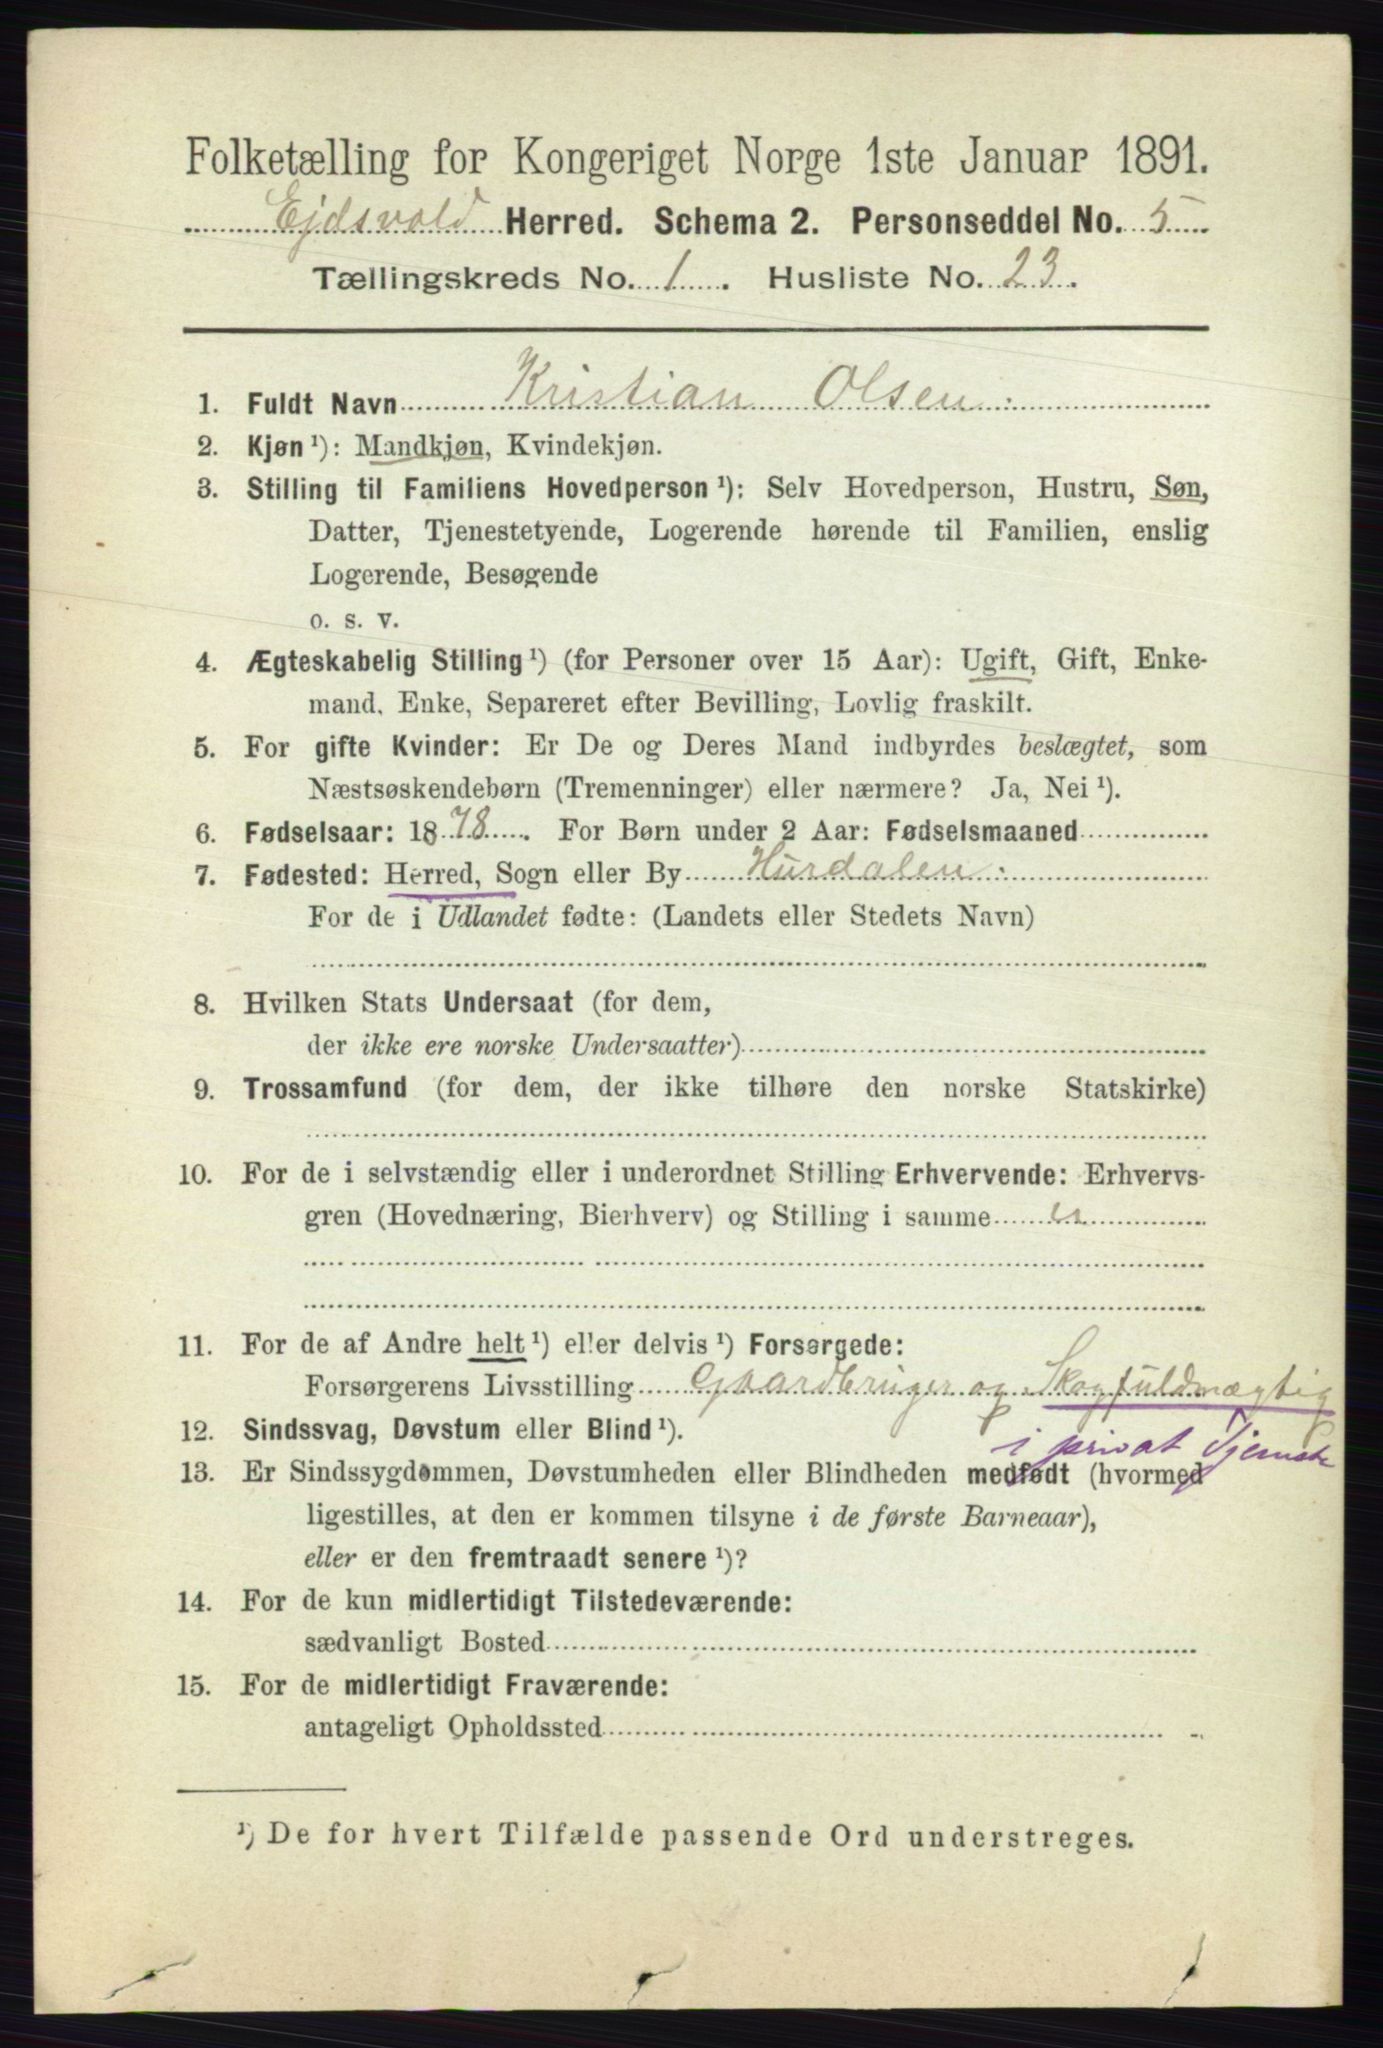 Folketælling for Kongeriget Norge 1ste Januar 1891.
Ejdsvold Herred. Schema 2. Personseddel No. 5
Tællingskreds No. 1. Husliste No. 23.
1. Fuldt Navn Kristian Olsen
2. Kjøn ¹): Mandkjøn, Kvindekjøn.
3. Stilling til Familiens Hovedperson ¹): Selv Hovedperson, Hustru, Søn,
Datter, Tjenestetyende, Logerende hørende til Familien, enslig
Logerende, Besøgende
o. s. v.
4. Ægteskabelig Stilling ¹) (for Personer over 15 Aar): Ugift, Gift, Enke-
mand, Enke, Separeret efter Bevilling, Lovlig fraskilt.
5. For gifte Kvinder: Er De og Deres Mand indbyrdes beslægtet, som
Næstsøskendebørn (Tremenninger) eller nærmere? Ja, Nei ¹).
6. Fødselsaar: 1878. For Børn under 2 Aar: Fødselsmaaned
7. Fødested: Herred, Sogn eller By Hurdalen
For de i Udlandet fødte: (Landets eller Stedets Navn)
8. Hvilken Stats Undersaat (for dem,
der ikke ere norske Undersaatter)
9. Trossamfund (for dem, der ikke tilhøre den norske Statskirke)
10. For de i selvstændig eller i underordnet Stilling Erhvervende: Erhvervs-
gren (Hovednæring, Bierhverv) og Stilling i samme
11. For de af Andre helt ¹) eller delvis ¹) Forsørgede:
Forsørgerens Livsstilling Gaardbruger og Skogfuldmægtig
i privat Tjeneste
12. Sindssvag, Døvstum eller Blind ¹).
13. Er Sindssygdommen, Døvstumheden eller Blindheden medfødt (hvormed
ligestilles, at den er kommen tilsyne i de første Barneaar),
eller er den fremtraadt senere ¹)?
14. For de kun midlertidigt Tilstedeværende:
sædvanligt Bosted
15. For de midlertidigt Fraværende:
antageligt Opholdssted
¹) De for hvert Tilfælde passende Ord understreges.